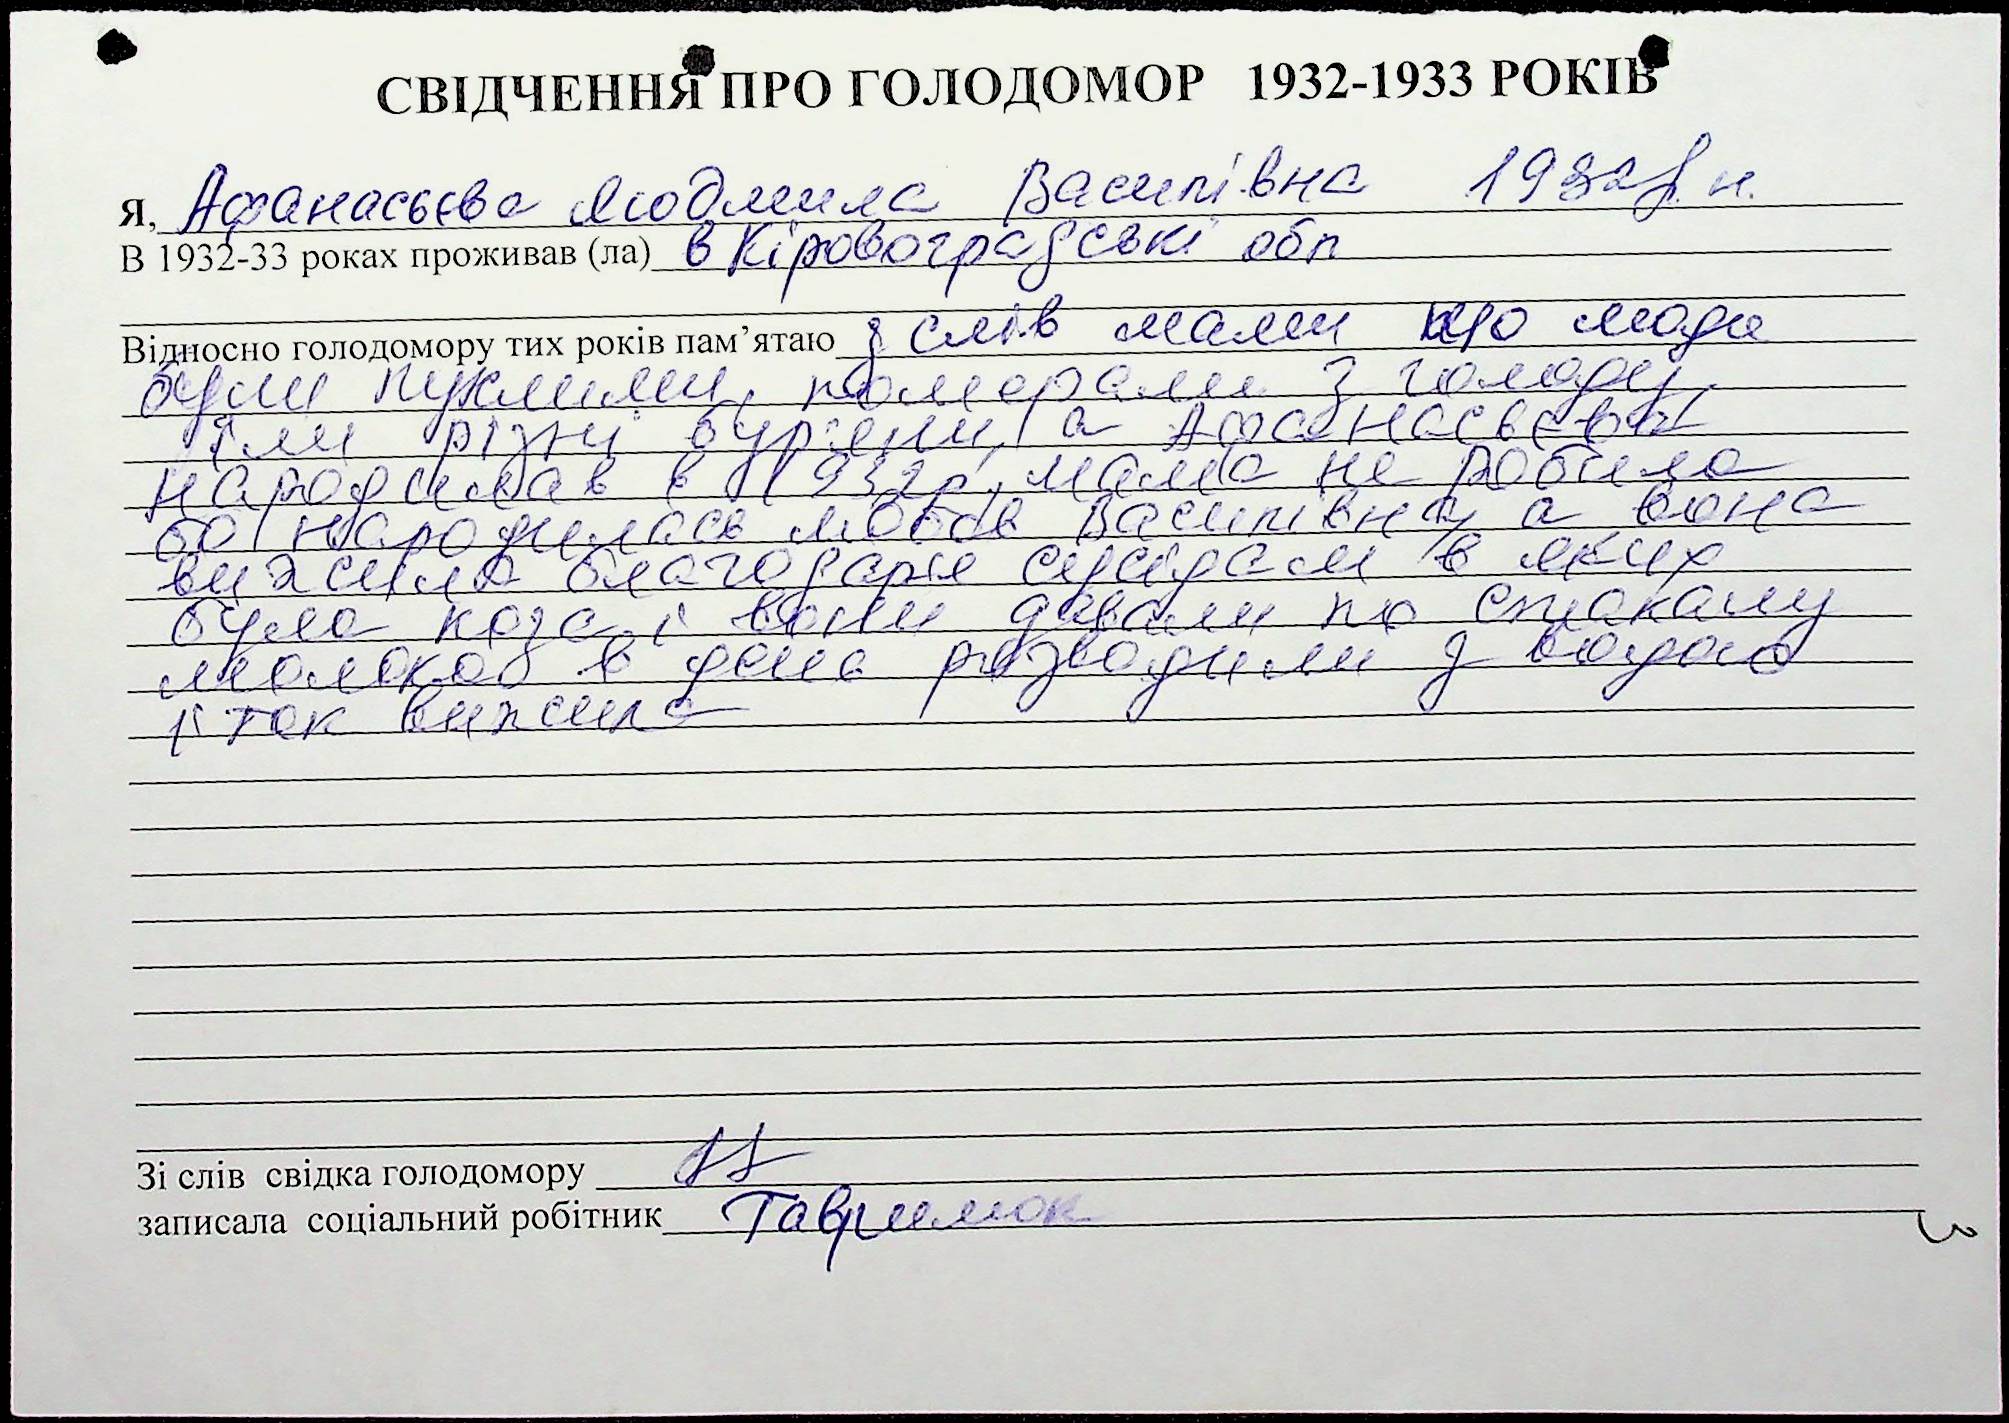 СВІДЧЕННЯ ПРО ГОЛОДОМОР 1932-1933 РОКІВ
Я, Афанасьєва Людмила Василівна 1932 р. н.
В 1932-33 роках проживав (ла) в Кіровоградські обл
Відносно голодомору тих років пам’ятаю з слів мами що люди
були пухлими, померали з голоду,
їли різні буряни, а Афанасьєва
народилав в 1932р, мама не робила
бо народилась Василівну а вона
вижила благодаря сусідам в яких
була коза і вони давали по стакану
молока в день розводили з водою
і так вижила
Зі слів свідка голодомору
записала соціальний робітник Гаврилюк